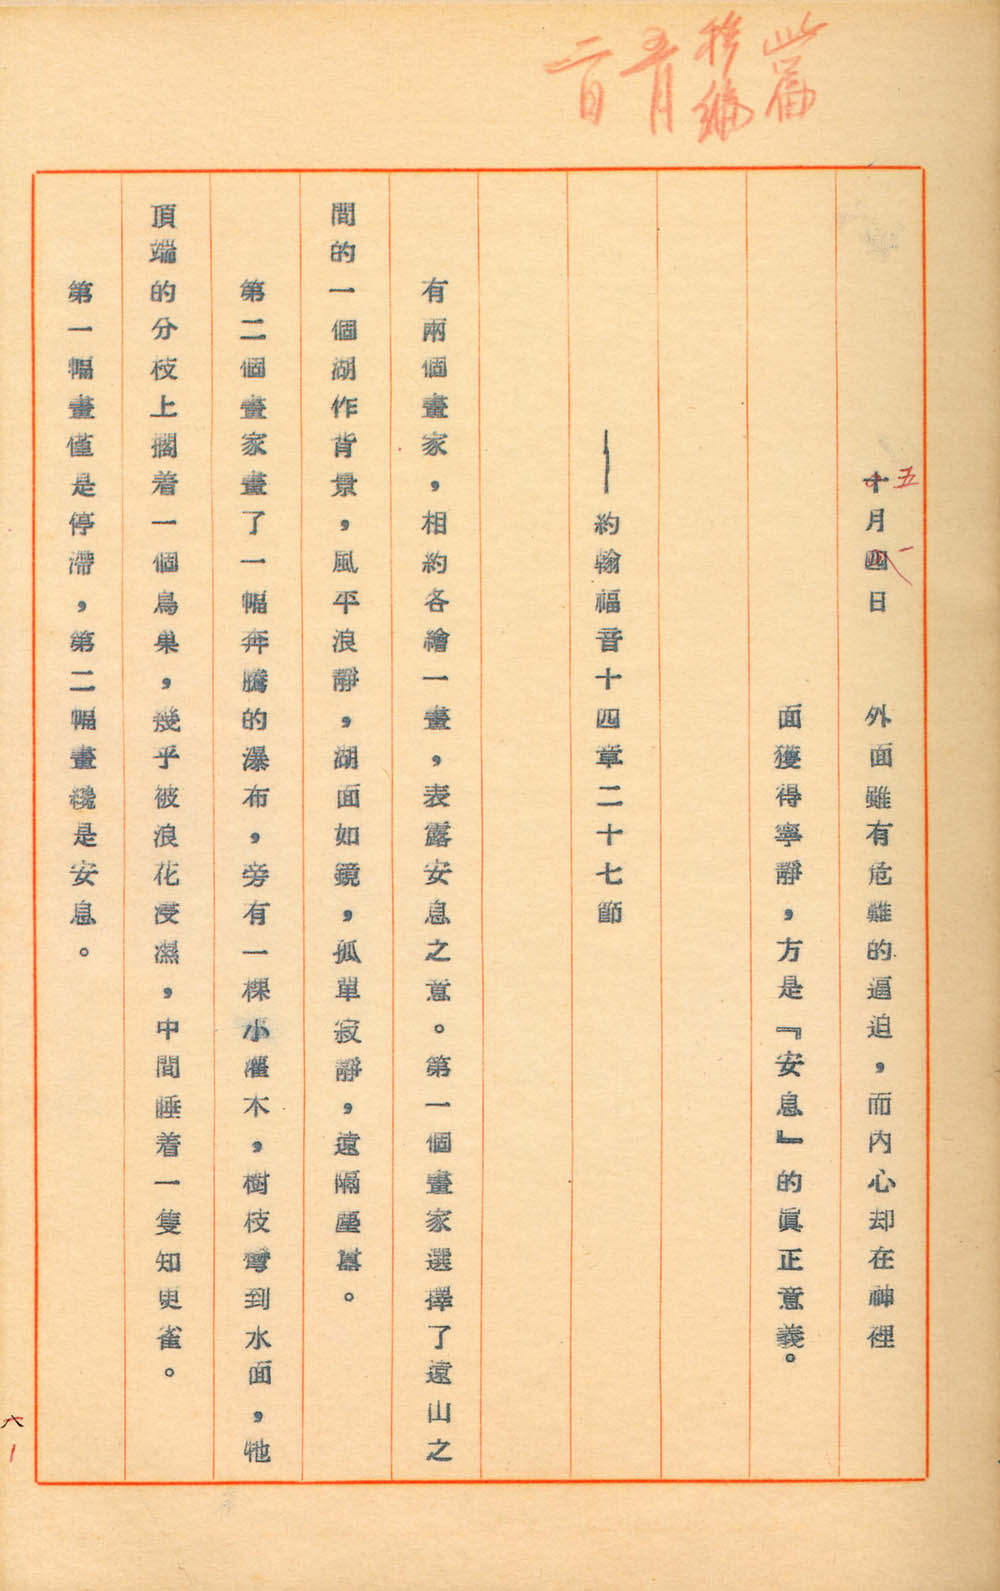 此篇
移編
五月
一日
五 一
十月四日　外面雖有危難的逼迫，而內心却在神裡
面獲得寧靜，方是『安息』的眞正意義。
——約翰福音十四章二十七節
有兩個畫家，相約各繪一畫，表露安息之意。第一個畫家選擇了遠山之
間的一個湖作背景，風平浪靜，湖面如鏡，孤單寂靜，遠隔塵囂。
第二個畫家畫了一幅奔騰的瀑布，旁有一棵小灌木，樹枝彎到水面，牠
頂端的分枝上擱着一個鳥巢，幾乎被浪花浸濕，中間睡着一隻知更雀。
第一幅畫僅是停滯，第二幅畫纔是安息。
六1